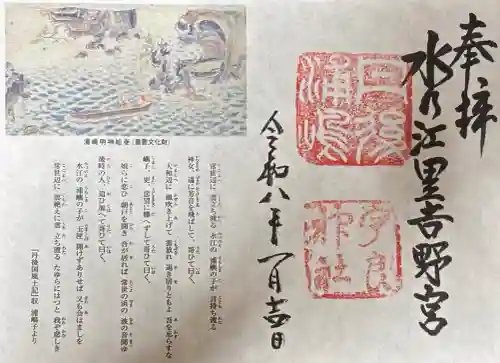 奉拝
水乃江里吉野宮
丹後
浦嶋
宇良
神社
令和八年一月吉日
浦嶋明神絵巻(重要文化財)
常世辺に 雲立ち渡る 水江の 浦嶼の子が 言持ち渡る
神女、遥に芳音を飛ばして、哥ひて曰く、
大和辺に 風吹き上げて 雲放れ 退き居りともよ 吾を忘らすな
嶼子、更、恋望に勝へずして哥ひて曰く、
娘らに恋ひ 朝戸を開き 吾が居れば 常世の浜の 波の音聞ゆ
後時の人、追ひ加へて哥ひて曰く、
水江の 浦嶼の子が 玉匣 開けずありせば 又も会はましを
常世辺に 雲立ち渡る たゆらにはつと 我ぞ悲しき
「丹後国風土記」収 浦嶼子より